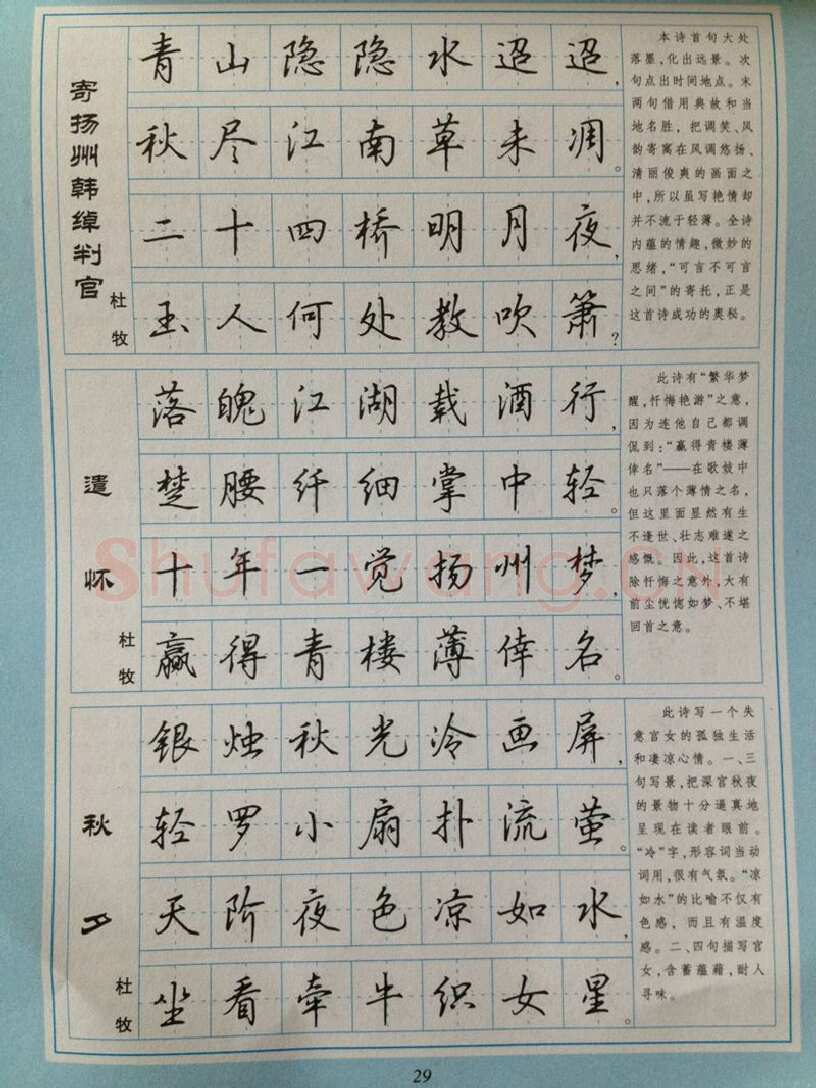 寄扬州韩绰判官
杜牧
青山隐隐水迢迢,
秋尽江南草未凋。
二十四桥明月夜,
玉人何处教吹箫?
本诗首句大处
落墨,化出远景。次
句点出时间地点。末
两句借用典故和当
地名胜,把调笑、风
韵寄寓在风调悠扬、
清丽俊爽的画面之
中,所以虽写艳情却
并不流于轻薄。全诗
内蕴的情趣,微妙的
思绪,“可言不可言
之间”的寄托,正是
这首诗成功的奥秘。
遣怀
杜牧
落魄江湖载酒行,
楚腰纤细掌中轻。
十年一觉扬州梦,
赢得青楼薄倖名。
此诗有“繁华梦
醒,忏悔艳游”之意,
因为连他自己都调
侃到:“赢得青楼薄
倖名”——在歌妓中
也只落个薄情之名,
但这里面显然有生
不逢世、壮志难遂之
感慨。因此,这首诗
除忏悔之意外,大有
前尘恍惚如梦、不堪
回首之意。
秋夕
杜牧
银烛秋光冷画屏,
轻罗小扇扑流萤。
天阶夜色凉如水,
坐看牵牛织女星。
此诗写一个失
意宫女的孤独生活
和凄凉心情。一、三
句写景,把深宫秋夜
的景物十分逼真地
呈现在读者眼前。
“冷”字,形容词当动
词用,很有气氛。“凉
如水”的比喻不仅有
色感,而且有温度
感。二、四句描写宫
女,含蓄蕴藉,耐人
寻味。
shufawang.cn
29